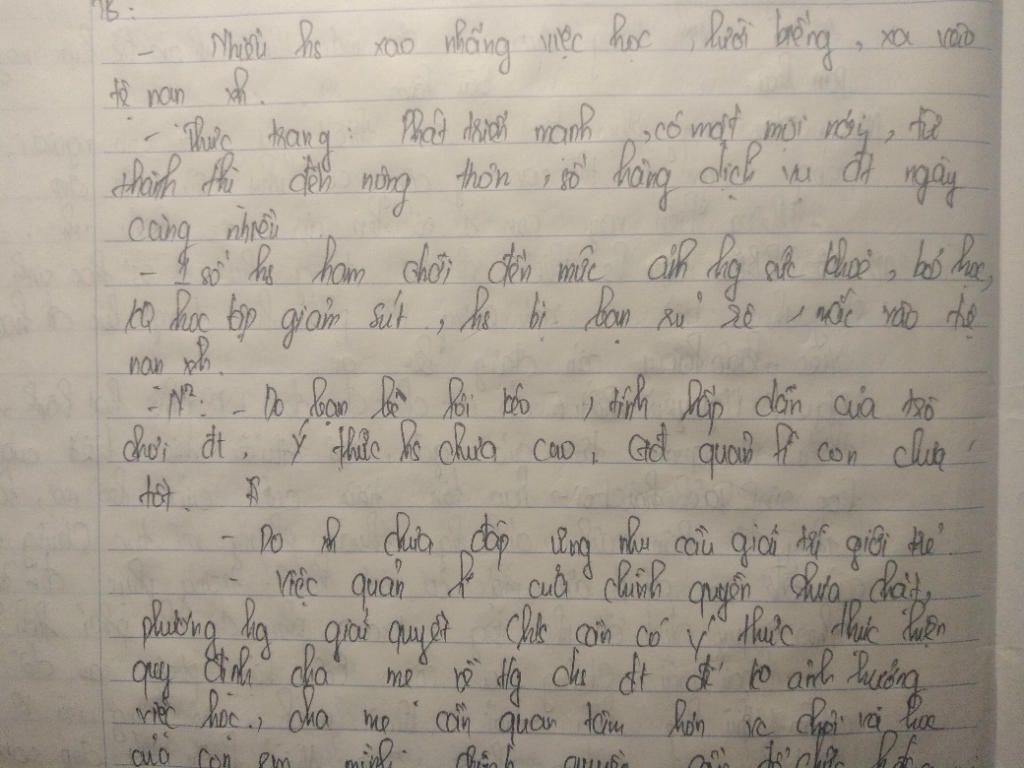 TB:
- Nhiều hs xao nhãng việc học, lười biếng, xa vào
tệ nạn xh.
- Thực trạng: Phát triển mạnh, có mặt mọi nơi, từ
thành thị đến nông thôn, số hàng dịch vụ đt ngày
càng nhiều
- 1 số hs ham chơi đến mức ảnh hg sức khoẻ, bỏ học,
kq học tập giảm sút, hs bị bạn xấu, mắc vào tệ
nạn xh.
- N²: - Do bạn bè lôi kéo, tính hấp dẫn của trò
chơi đt, ý thức hs chưa cao, gđ quản lí con chưa
tốt.
- Do xh chưa đáp ứng nhu cầu giải trí giới trẻ.
- Việc quản lí của chính quyền chưa chặt,
phương hg giải quyết cần có ý thức thực hiện
quy định cha mẹ về đt để ko ảnh hưởng
việc học, cha mẹ cần quan tâm hơn và học
của con em mình, chính quyền cần